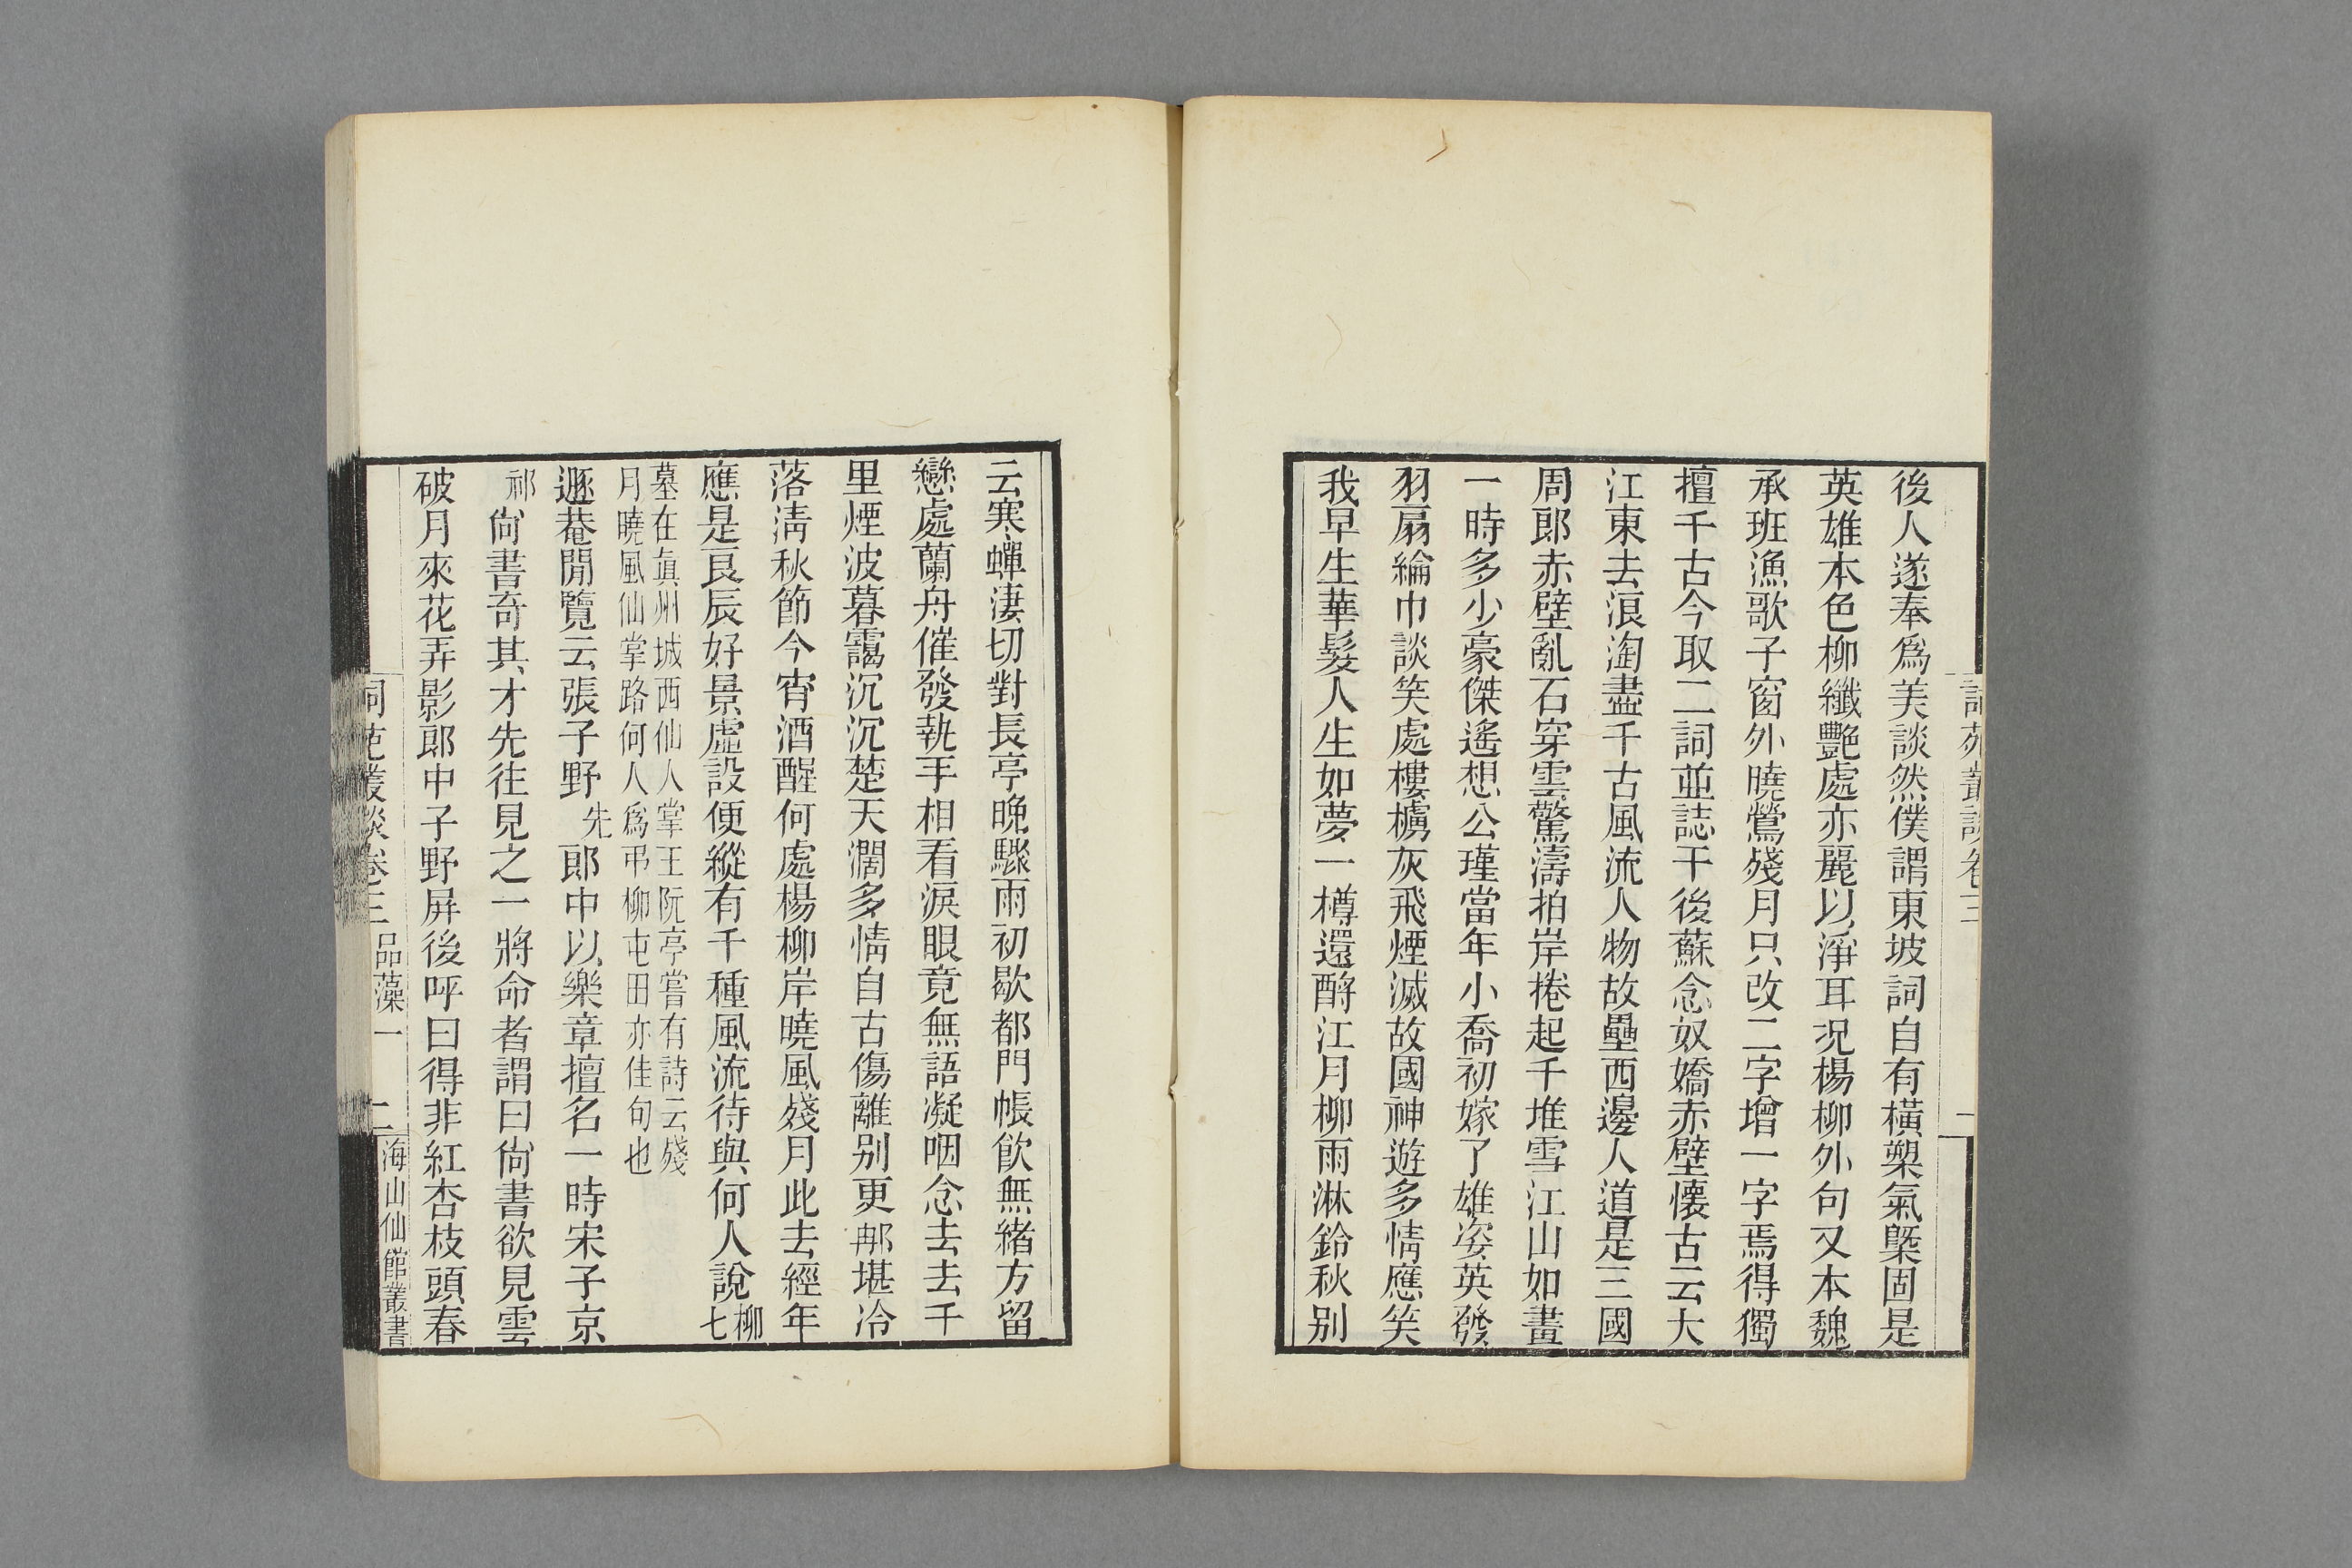 詞苑叢談卷三
後人遂奉爲美談然僕謂東坡詞自有橫槊氣槩固是
英雄本色柳纖艷處亦麗以淨耳況楊柳外句又本魏
承班漁歌子窗外曉鶯殘月只改二字增一字焉得獨
擅千古今取二詞並誌于後蘇念奴嬌赤壁懷古云大
江東去浪淘盡千古風流人物故壘西邊人道是三國
周郎赤壁亂石穿雲驚濤拍岸捲起千堆雪江山如畫
一時多少豪傑遙想公瑾當年小喬初嫁了雄姿英發
羽扇綸巾談笑處樓櫓灰飛煙滅故國神遊多情應笑
我早生華髮人生如夢一樽還酹江月柳雨淋鈴秋别
云寒蟬淒切對長亭晚驟雨初歇都門帳飲無緒方留
戀處蘭舟催發執手相看淚眼竟無語凝咽念去去千
里煙波暮靄沉沉楚天濶多情自古傷離别更那堪冷
落淸秋節今宵酒醒何處楊柳岸曉風殘月此去經年
應是良辰好景虛設便縱有千種風流待與何人說柳七
墓在眞州城西仙人掌王阮亭嘗有詩云殘
月曉風仙掌路何人爲弔柳屯田亦佳句也
遯菴閒覽云張子野先郎中以樂章擅名一時宋子京
祁尙書奇其才先往見之一將命者謂曰尙書欲見雲
破月來花弄影郎中子野屏後呼曰得非紅杏枝頭春
詞苑叢談卷三 品藻一 二 海山仙館叢書